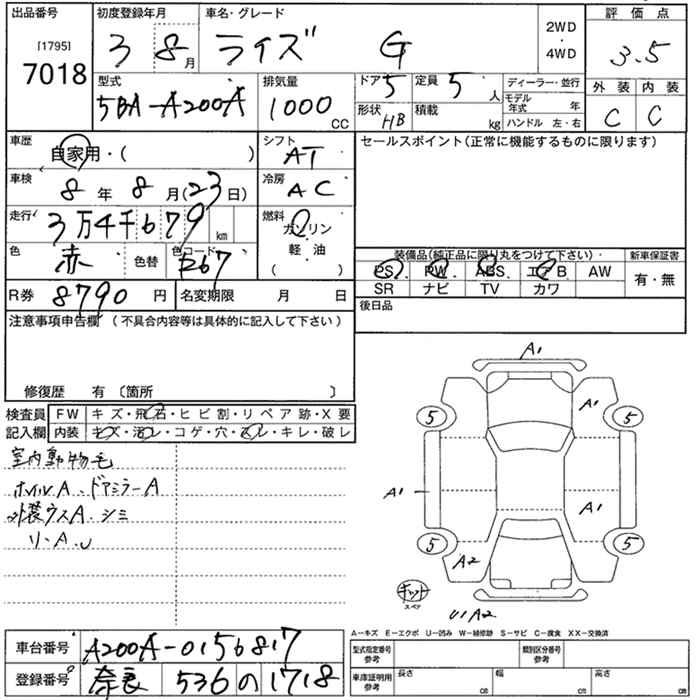 出品番号 初度登録年月 車名・グレード 2WD・4WD 評価点
[1795] 7018 3 8月 ライズ G 3.5
型式 排気量 ドア 5 定員 5人 ディーラー・並行 外装 内装
5BA-A200A 1000CC 形状 HB 積載 kg モデル年式 年 C C
ハンドル 左・右
車歴 自家用・( ) シフト AT セールスポイント(正常に機能するものに限ります)
車検 8年 8月(23日) 冷房 AC
走行 3万4千679km 燃料 ガソリン
軽・油
( )
色 赤 色替 色コード 装備品(純正品に限り丸をつけて下さい) 新車保証書
PS PW ABS エアB AW 有・無
SR ナビ TV カワ
R券 8790円 名変期限 月 日 後日品
注意事項申告欄 (不具合内容等は具体的に記入して下さい)
修復歴 有 〔箇所 〕
検査員 FW キズ・飛石・ヒビ割・リペア跡・X要
記入欄 内装 キズ・汚レ・コゲ・穴・スレ・キレ・破レ
室内動物毛
ホイルA、ドアミラーA
外装ウスA、シミ
A1
5 A1 5
A1 A1
5 A2 5
キット
スペア
A2
A-キズ E-エクボ U-凹み W-補修跡 S-サビ C-腐食 XX-交換済
車台番号 A200A-0156817 型式指定番号 参考 類別区分番号 参考
登録番号 奈良 536 の 1718 車庫証明用 参考 長さ cm 幅 cm 高さ cm